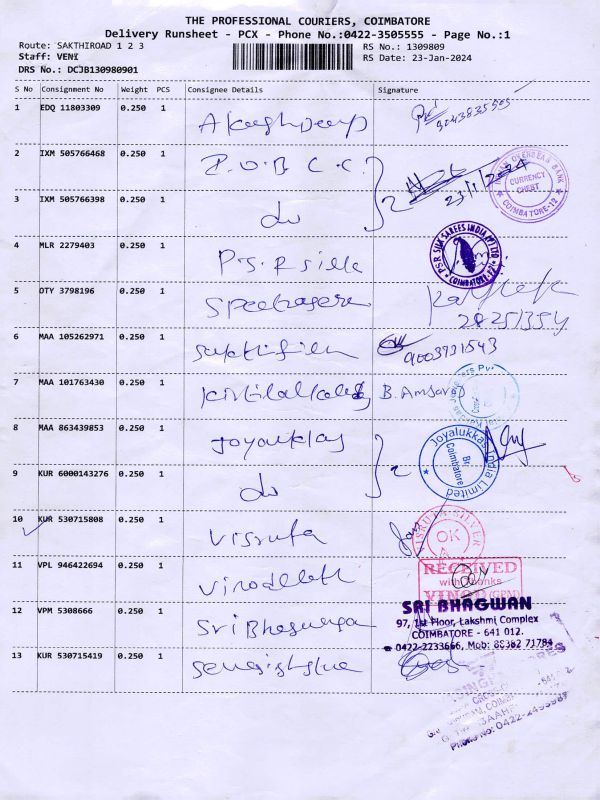 THE PROFESSIONAL COURIERS, COIMBATORE
Delivery Runsheet - PCX - Phone No.:0422-3505555 - Page No.:1
Route: SAKTHIROAD 1 2 3
RS No.: 1309809
Staff: VENI
RS Date: 23-Jan-2024
DRS No.: DCJB130980901
S No Consignment No Weight PCS Consignee Details Signature
1 EDQ 11803309 0.250 1
9043835505
2 IXM 505766468 0.250 1 I.O.B C.C.
2 23/1/2024
INDIAN OVERSEAS BANK CURRENCY CHEST COIMBATORE-12
3 IXM 505766398 0.250 1 do
4 MLR 2279403 0.250 1 P.S.R silk
P.S.R SILK SAREES INDIA (P) LTD COIMBATORE-12
5 OTY 3798196 0.250 1
6 MAA 105262971 0.250 1
9003931543
7 MAA 101763430 0.250 1 B. Amsaraj
8 MAA 863439853 0.250 1 Joyalukkas
2
Joyalukkas India Limited Br. Coimbatore
9 KUR 6000143276 0.250 1 do
10 KUR 530715808 0.250 1 Visruta
OK
11 VPL 946422694 0.250 1
RECEIVED
with thanks
12 VPM 5308666 0.250 1 Sri Bhagwan
SRI BHAGWAN
97, 1st Floor, Lakshmi Complex
COIMBATORE - 641 012.
0422-2233666, Mob: 86362 71784
13 KUR 530715419 0.250 1